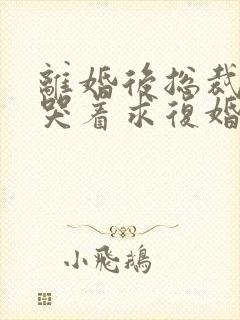 離婚後总裁
哭着求復婚
小飛鵝